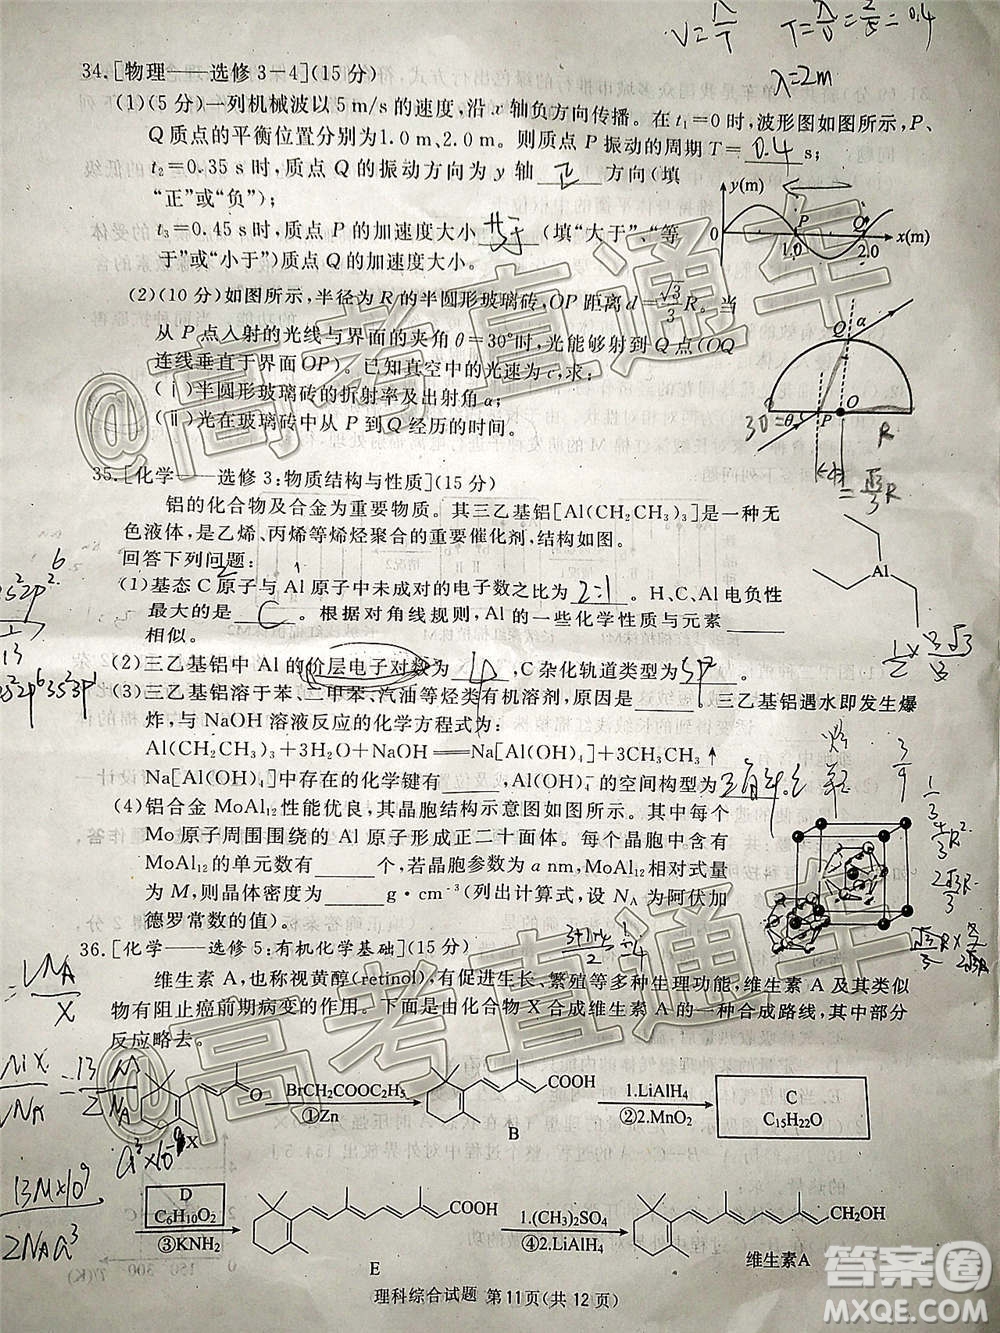 V=λ/T T=λ/v=2/5=0.4
λ=2m
34.[物理——选修3-4](15分)
(1)(5分)一列机械波以5 m/s的速度,沿x轴负方向传播。在t₁=0时,波形图如图所示,P、
Q质点的平衡位置分别为1.0 m、2.0 m。则质点P振动的周期T= 0.4 s;
t₂=0.35 s时,质点Q的振动方向为y轴 正 方向(填
“正”或“负”);
t₃=0.45 s时,质点P的加速度大小 (填“大于”、“等
于”或“小于”)质点Q的加速度大小。
y(m)
P
Q
0
1.0
2.0
x(m)
(2)(10分)如图所示,半径为R的半圆形玻璃砖,OP距离d=√3/3 R。当
从P点入射的光线与界面的夹角θ=30°时,光能够射到Q点(OQ
连线垂直于界面OP)。已知真空中的光速为c,求:
(ⅰ)半圆形玻璃砖的折射率及出射角α;
(ⅱ)光在玻璃砖中从P到Q经历的时间。
Q α
30°=θ P O
R
d
=√3/3 R
35.[化学——选修3:物质结构与性质](15分)
铝的化合物及合金为重要物质。其三乙基铝[Al(CH₂CH₃)₃]是一种无
色液体,是乙烯、丙烯等烯烃聚合的重要催化剂,结构如图。
回答下列问题:
(1)基态C原子与Al原子中未成对的电子数之比为 2:1 。H、C、Al电负性
最大的是 C 。根据对角线规则,Al的一些化学性质与元素
相似。
Al
(2)三乙基铝中Al的价层电子对数为 ,C杂化轨道类型为 。
(3)三乙基铝溶于苯、二甲苯、汽油等烃类有机溶剂,原因是 。三乙基铝遇水即发生爆
炸,与NaOH溶液反应的化学方程式为:
Al(CH₂CH₃)₃+3H₂O+NaOH══Na[Al(OH)₄]+3CH₃CH₃↑
Na[Al(OH)₄]中存在的化学键有 ,Al(OH)₄⁻的空间构型为
(4)铝合金MoAl₁₂性能优良,其晶胞结构示意图如图所示。其中每个
Mo原子周围围绕的Al原子形成正二十面体。每个晶胞中含有
MoAl₁₂的单元数有 个,若晶胞参数为a nm,MoAl₁₂相对式量
为M,则晶体密度为 g·cm⁻³(列出计算式,设Nₐ为阿伏加
德罗常数的值)。
36.[化学——选修5:有机化学基础](15分)
维生素A,也称视黄醇(retinol),有促进生长、繁殖等多种生理功能,维生素A及其类似
物有阻止癌前期病变的作用。下面是由化合物X合成维生素A的一种合成路线,其中部分
反应略去。
O
X
BrCH₂COOC₂H₅
①Zn
COOH
B
1.LiAlH₄
②2.MnO₂
C
C₁₅H₂₂O
D
C₆H₁₀O₂
③KNH₂
COOH
E
1.(CH₃)₂SO₄
④2.LiAlH₄
CH₂OH
维生素A
理科综合试题 第11页(共12页)
@高考直通车
@高考直通车
答案圈
MXQE.COM